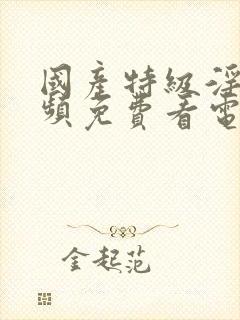 國產特級淫
頻免費看電
金起范